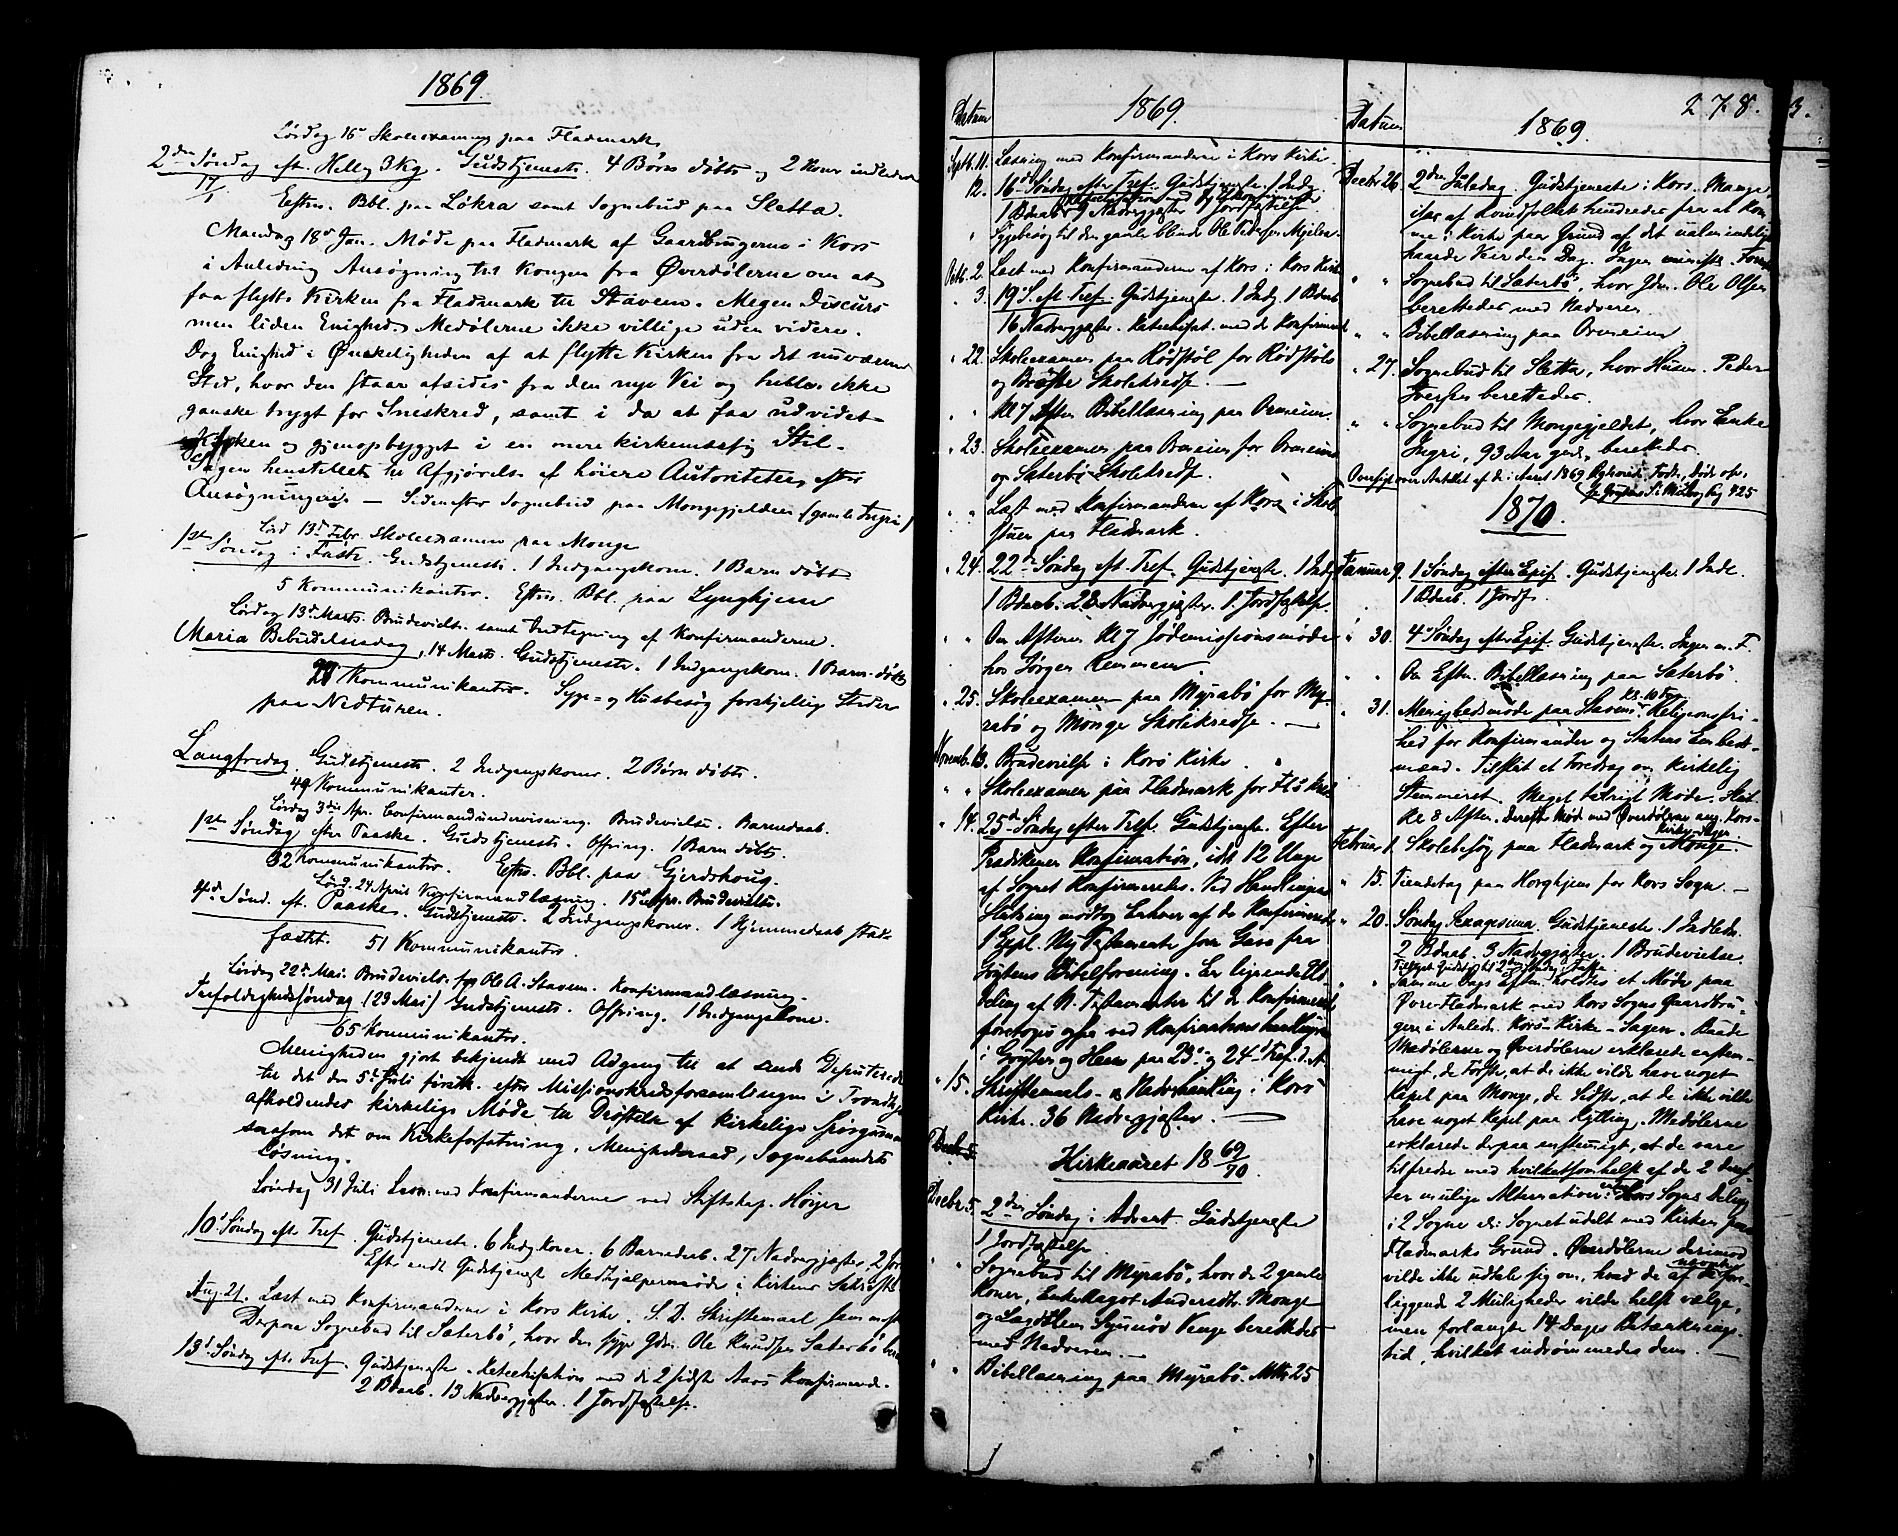 1869.
Lørdag 16de Skoleexamen paa Fladmark
2den Søndag eft. Hellig 3 Kg. Gudstjeneste. 4 Børn døbte og 2 Koner indledede
17/1 Eftm. Bbl. paa Løkra samt Sognebud paa Sletta.
Mandag 18de Jan. Møde paa Fladmark af Gaardbrugerne i Kors
i Anledning Ansøgning til Kongen fra Øverdølerne om at
faa flytte Kirken fra Fladmark til Staven. Megen Discurs
men liden Enighed. Medølerne ikke villige uden videre.
Dog Enighed i Ønskeligheden af at flytte Kirken fra det nuværende
Sted, hvor den staar afsides fra den nye Vei og heller ikke
ganske trygt for Sneskred, samt i da at faa udvidet
Kirken og gjenopbygget i en mere kirkemæssig Stil.
Sagen henstillet til Afgjørelse af høiere Autoriteter efter
Ansøgningen. — Sidenefter Sognebud paa Mongegjeldet (gamle Ingri)
Lørd 13de Febr. Skoleexamen paa Monge
1ste Søndag i Faste. Gudstjeneste. 1 Indgangskone. 1 Barn døbt
5 Kommunikanter. Eftm. Bbl. paa Lyngheim
Lørdag 13de Marts. Brudevielse samt Indtegning af Konfirmanderne.
Maria Bebudelsesdag, 14 Marts. Gudstjeneste. 1 Indgangskone. 1 Barn døbt
28 Kommunikanter. Syge- og Husbesøg forskjellige Steder
paa Nedturen.
Langfredag. Gudstjeneste. 2 Indgangskoner. 2 Børn døbte.
49 Kommunikanter.
Lørdag 3die Apr. Confirmandundervisning. Brudevielse. Barnedaab.
1ste Søndag efter Paaske. Gudstjeneste. Offring. 1 Barn døbt.
32 Kommunikanter. Eftm. Bbl. paa Gjerdshoug.
Lørd. 24 April Konfirmandlæsning. 15 Apr. Brudevielse.
4de Sønd. eft. Paaske. Gudstjeneste. 2 Indgangskoner. 1 Hjemmedaab stad-
fæstet. 51 Kommunikanter.
Lørdag 22de Mai. Brudevielse for Ole A. Staven. Konfirmandlæsning.
Trefoldighedssøndag (23 Mai) Gudstjeneste. Offring. 1 Indgangskone.
65 Kommunikanter.
Menigheden gjort bekjendt med Adgang til at sende Deputerede
til det den 5te Juli førstk. efter Missionskredsforsamlingen i Trondhjem
afholdendes kirkelige Møde til Drøftelse af kirkelige Spørgsmaal
saasom det om Kirkeforfatning, Menighedsraad, Sognebaandets
Løsning.
Lørdag 31 Juli Læst med Konfirmanderne ved Stiftskap. Høyer
10de Søndag eft. Tref. Gudstjeneste. 6 Indg. Koner. 6 Barnedaab. 27 Nadvergjæster, 2 Jor
Efter endt Gudstjeneste Medhjælpermøde i Kirkens Sakristi
Aug. 21. Læst med Konfirmanderne i Kors Kirke. S. D. Skriftemaal sammest
Derpaa Sognebud til Sæterbø, hvor den syge Gdm. Ole Knudsen Sæterbø ber
13de Søndag eft. Tref. Gudstjeneste. Katechisation med de 2 sidste Aars Konfirmerede.
2 Bdaab. 13 Nadvergjæster. 1 Jordfæstelse.
Datum 1869.
Septb. 11. Læsning med Konfirmanderne i Kors Kirke.
12. 16de Søndag efter Tref. Gudstjeneste. 1 Indg.
1 Bdaab. 9 Nadvergjæster 1 Jordfæstelse
" Sygebesøg til den gamle blinde Ole Pedersen Mjelva
Octb. 2. Læst med Konfirmanderne af Kors i Kors Kirke
" 3. 19de S. eft. Tref. Gudstjeneste. 1 Indg. 1 Bdaab
16 Nadvergjæster. Katechisat. med de Konfirmerede
" 22. Skoleexamen paa Rødstøl for Rødstøls
og Brøste Skolekredse. —
" " Kl 7 Aften Bibellæsning paa Ormeim
" 23. Skoleexamen paa Ormeim for Ormeim
og Sæterbø Skolekredse.
" " Læst med Konfirmanderne af Kors i Skole
stuen paa Fladmark.
" 24. 22de Søndag eft. Tref. Gudstjeneste. 1 Indg
1 Bdaab. 28 Nadvergjæster. 1 Jordfæstelse.
" " Om Aftenen Kl 7 Jødemissionsmøde
hos Jørgen Remmem
" 25. Skoleexamen paa Myrabø for My-
rabø og Monge Skolekredse. —
Novemb. 13. Brudevielse i Kors Kirke.
" " Skoleexamen paa Fladmark for Fl's Kred
" 14. 25de Søndag efter Tref. Gudstjeneste. Efter
Prædikenen Konfirmation, idet 12 Unge
af Sognet Konfirmeredes. Ved Handlingens
Slutning modtog Enhver af de Konfirmerede
1 Expl. Ny Testamente som Gave fra
Grytens Bibelforening. En lignende Ud-
deling af N. Testamenter til de Konfirmerede
foretoges ogsaa ved Konfirmationshandlingen
i Gryten og Hen paa 23de og 24de Tref. d. A.
" 15. Skriftemaals- og Nadverhandling i Kors
Kirke. 36 Nadvergjæster. —
Kirkeaaret 1869/70.
Decbr 5. 2den Søndag i Advent. Gudstjeneste
1 Jordfæstelse
" " Sognebud til Myrabø, hvor de 2 gamle
Koner, Enke Ragot Andersdtr. Monge
og Lægdslem Synnøv Venge berettedes
med Nadveren. —
" " Bibellæsning paa Myrabø. Mtth 25
Datum 1869. 278.
Decbr 26. 2den Juledag. Gudstjeneste i Kors. Mange,
især af Kvindfolket hindredes fra at Kom-
me i Kirke paa Grund af det ualmindelig
haarde Veir den Dag. Ingen minist. Forr
" " Sognebud til Sæterbø, hvor Gdm. Ole Olsen
berettedes med Nadveren
" " Bibellæsning paa Ormeim
" 27. Sognebud til Sletta, hvor Husm. Peder
Iversen berettedes.
" " Sognebud til Mongegjeldet, hvor Enke
Ingri, 93 Aar gml., berettedes.
Oversigt over Antallet af de i Aaret 1869 Fødte, Døde osv.
1870.
Januar 9. 1 Søndag efter Epif. Gudstjeneste. 1 Indl.
1 Bdaab. 1 Jordf.
" 30. 4de Søndag efter Epif. Gudstjeneste. Ingen m. F.
" " Om Eftm. Bibellæsning paa Sæterbø.
" 31. Menighedsmøde paa Staven Kl. 10 Fm. Religionsfri-
hed for Konfirmander og Statens Embeds-
mænd. Tilslut et Foredrag om kirkelig
Stemmeret. Meget talrigt Møde. Slut
Kl 8 Aften. Derefter Møde med Øverdølerne ang. Kors-
Kirke-Sagen.
Februar 1. Skolebesøg paa Fladmark og Monge.
" 15. Tiendetag paa Horgheim for Kors Sogn. —
" 20. Søndag Sexagesima. Gudstjeneste. 1 Indledn.
2 Bdaab. 3 Nadvergjæster. 1 Brudevielse.
Tillyst Gudstj. til 2den Søndag i Faste
" Samme Dags Eftm. holdtes et Møde paa
Øvre-Fladmark med Kors Sogns Gaardbru-
gere i Anledn. Kors-Kirke-Sagen. Baade
Medølerne og Øverdølerne erklærede enstem-
migt, de Første, at de ikke vilde have noget
Kapel paa Monge, de Sidste, at de ikke vilde
have noget Kapel paa Kylling. Medølerne
erklærede derpaa enstemmigt, at de vare
tilfredse med hvilketsomhelst af de 2 deref-
ter mulige Alternativer: enten Kors Sogns Deling
i 2 Sogne el. Sognet udelt med Kirken paa
Fladmarks Grund. Øverdølerne derimod
vilde ikke udtale sig om, hvad de af de nævnte fore-
liggende 2 Muligheder vilde helst vælge,
men forlangte 14 Dages Betænknings-
tid, hvilket indrømmedes dem. —